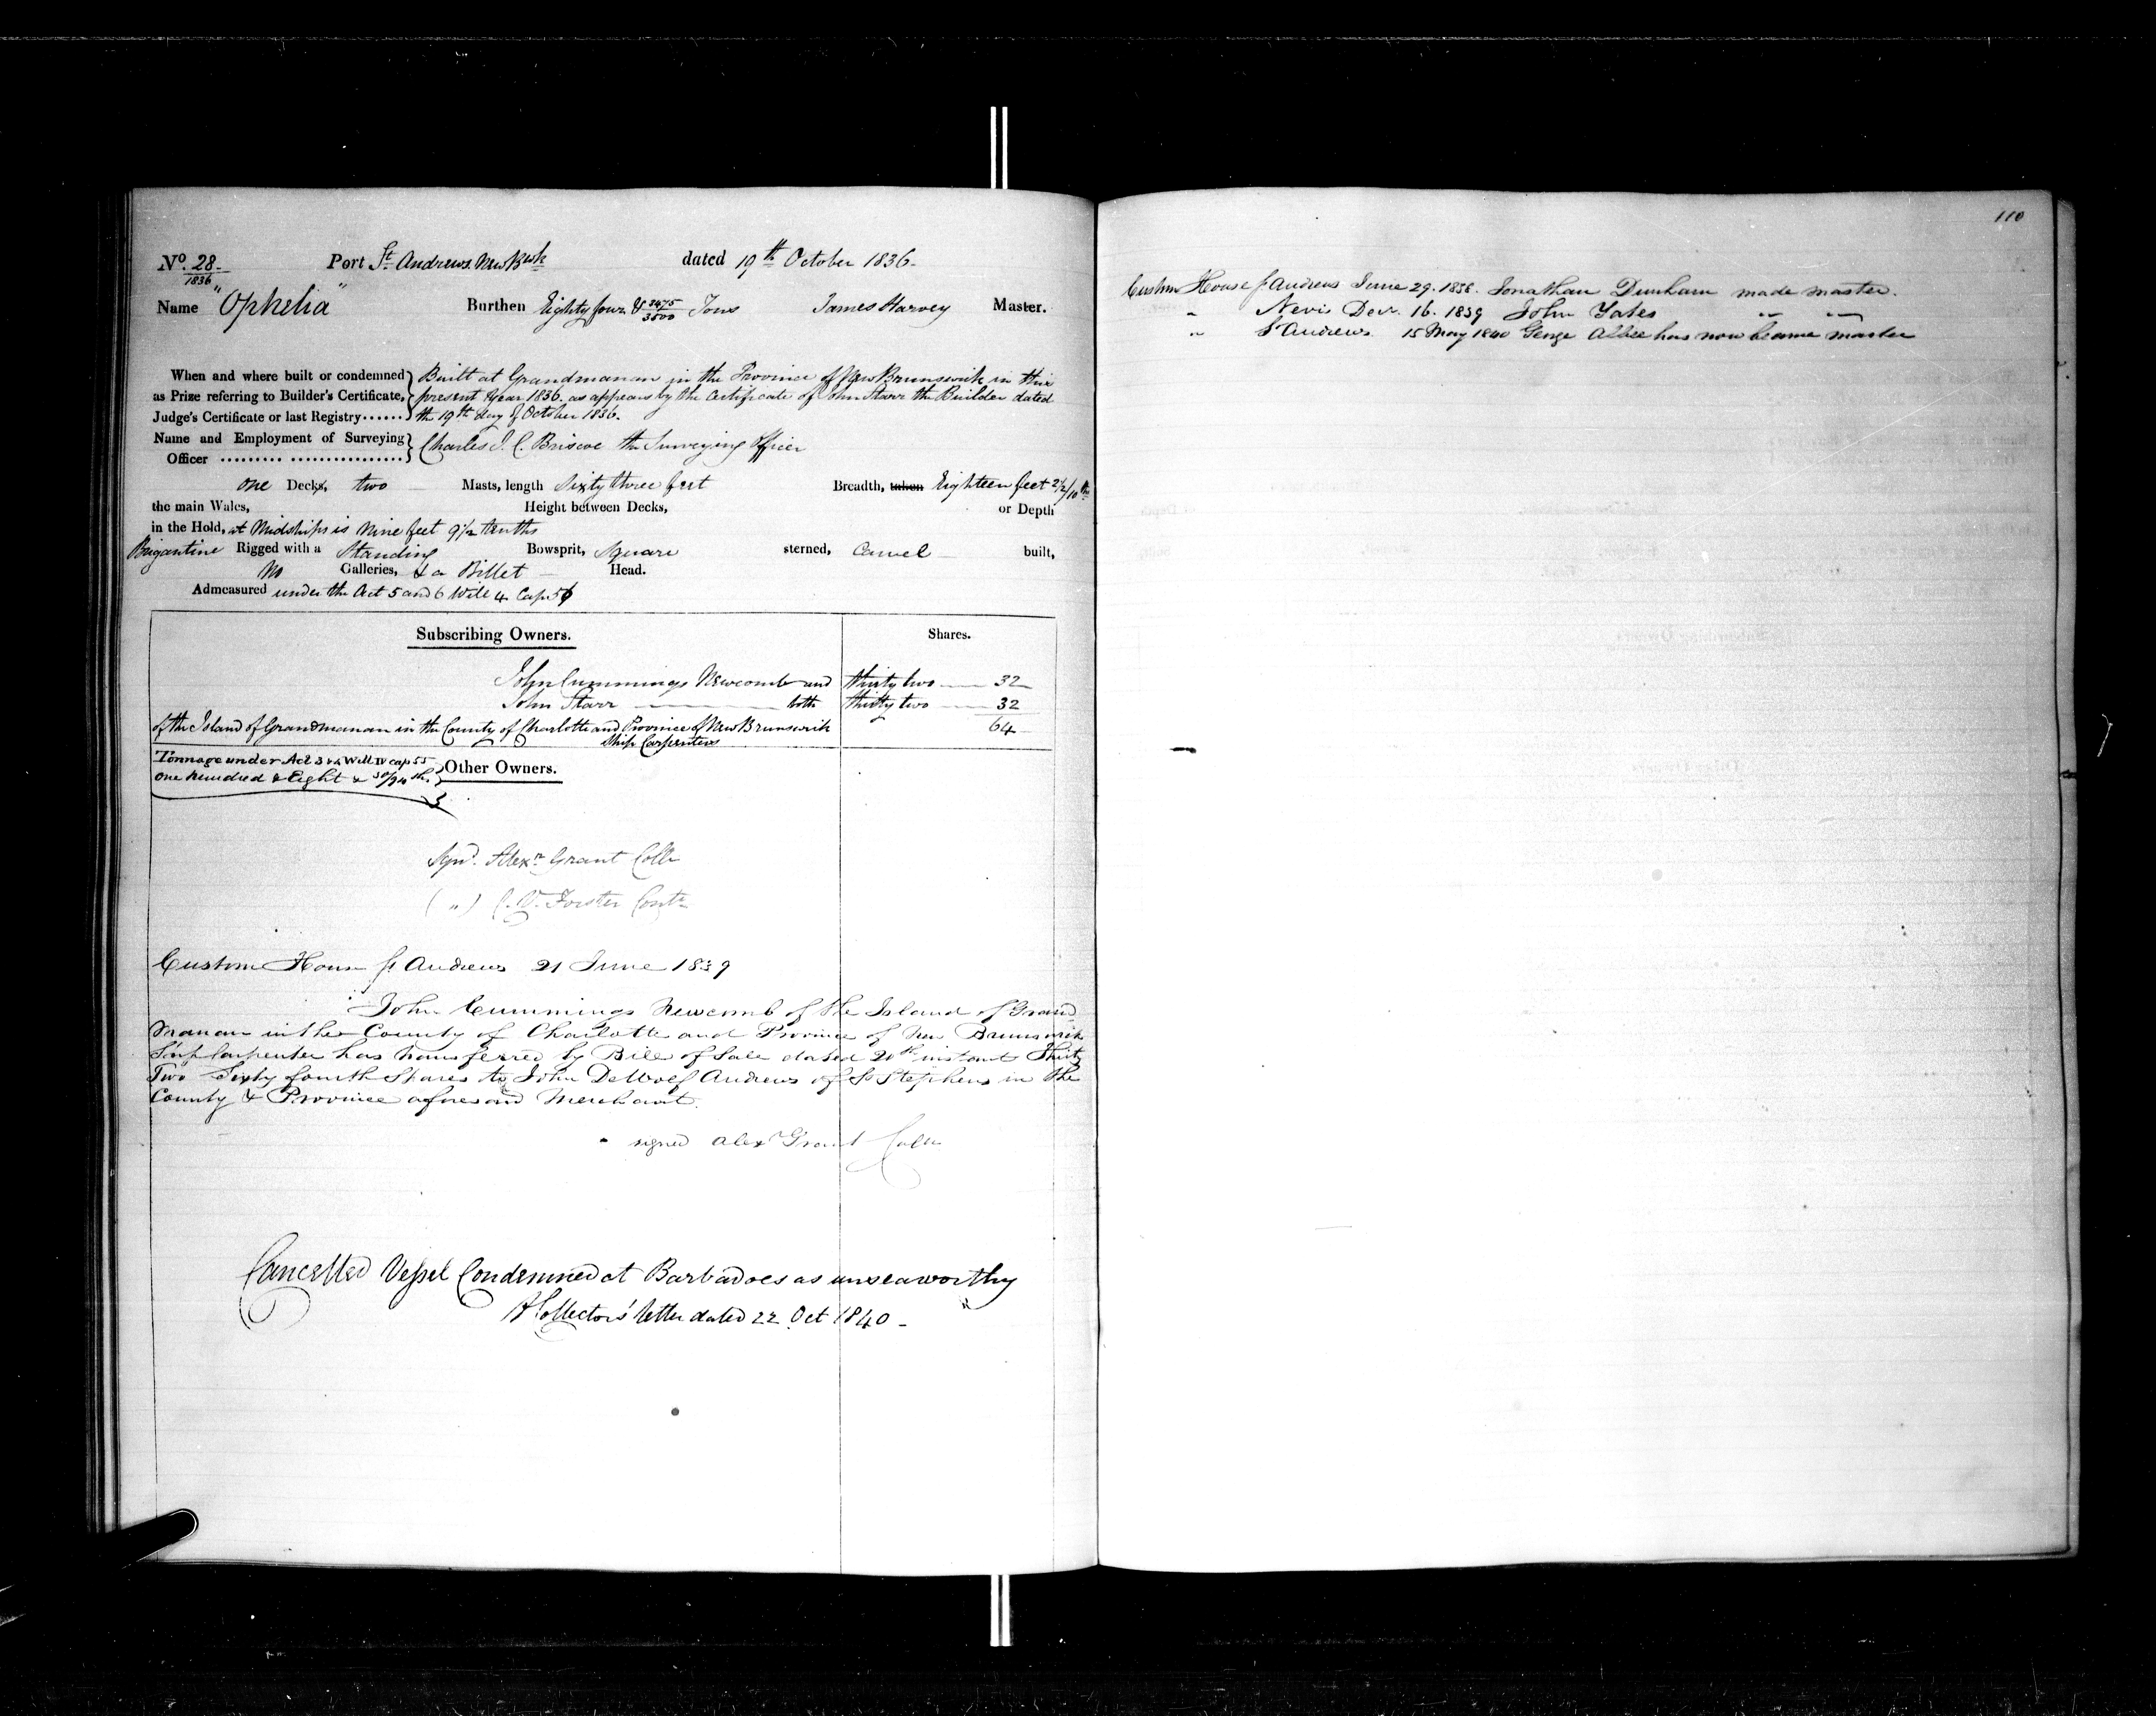 No. 28 Port St Andrews. New Bwk dated 19th October 1836
1836
Name "Ophelia" Burthen Eighty four & 3475/3500 Tons James Harvey Master.
When and where built or condemned as Prize referring to Builder's Certificate, Judge's Certificate or last Registry......
Built at Grandmanan in the Province of New Brunswick in this
present year 1836. as appears by the Certificate of John Starr the Builder dated
the 19th day of October 1836.
Name and Employment of Surveying Officer
Charles J. C. Briscoe the Surveying Officer
one Decks, two Masts, length Sixty three feet Breadth, taken Eighteen feet 2 1/2/10ths
the main Wales, Height between Decks, or Depth
in the Hold, at Midships is Nine feet 9 1/2 tenths
Brigantine Rigged with a Standing Bowsprit, Square sterned, Carvel built,
No Galleries, & a Billet Head.
Admeasured under the Act 5 and 6 Will 4 Cap 56
Subscribing Owners. Shares.
John Cummings Newcomb and thirty two 32
John Starr both thirty two 32
of the Island of Grandmanan in the County of Charlotte and Province of New Brunswick 64
Ship Carpenters
Tonnage under Act 3 & 4 Will IV cap 55
one hundred & Eight & 30/94ths.
Other Owners.
Signd. Alexr Grant Collr
(") Forster Contr
Custom House St Andrews 21 June 1839
John Cummings Newcomb of the Island of Grand
Manan in the County of Charlotte and Province of New Brunswick
Ship Carpenter has transferred by Bill of Sale dated 20th instant Thirty
Two Sixty fourth Shares to John DeWolf Andrews of St Stephens in the
County & Province aforesaid Merchant.
signed Alexr Grant Collr
Cancelled Vessel Condemned at Barbadoes as unseaworthy
Collectors' letter dated 22 Oct 1840
110
Custom House St Andrews June 29. 1838. Jonathan Dunham made master.
" Nevis Decr. 16. 1839 John Yates " "
" St Andrews 15 May 1840 George Albee has now became master